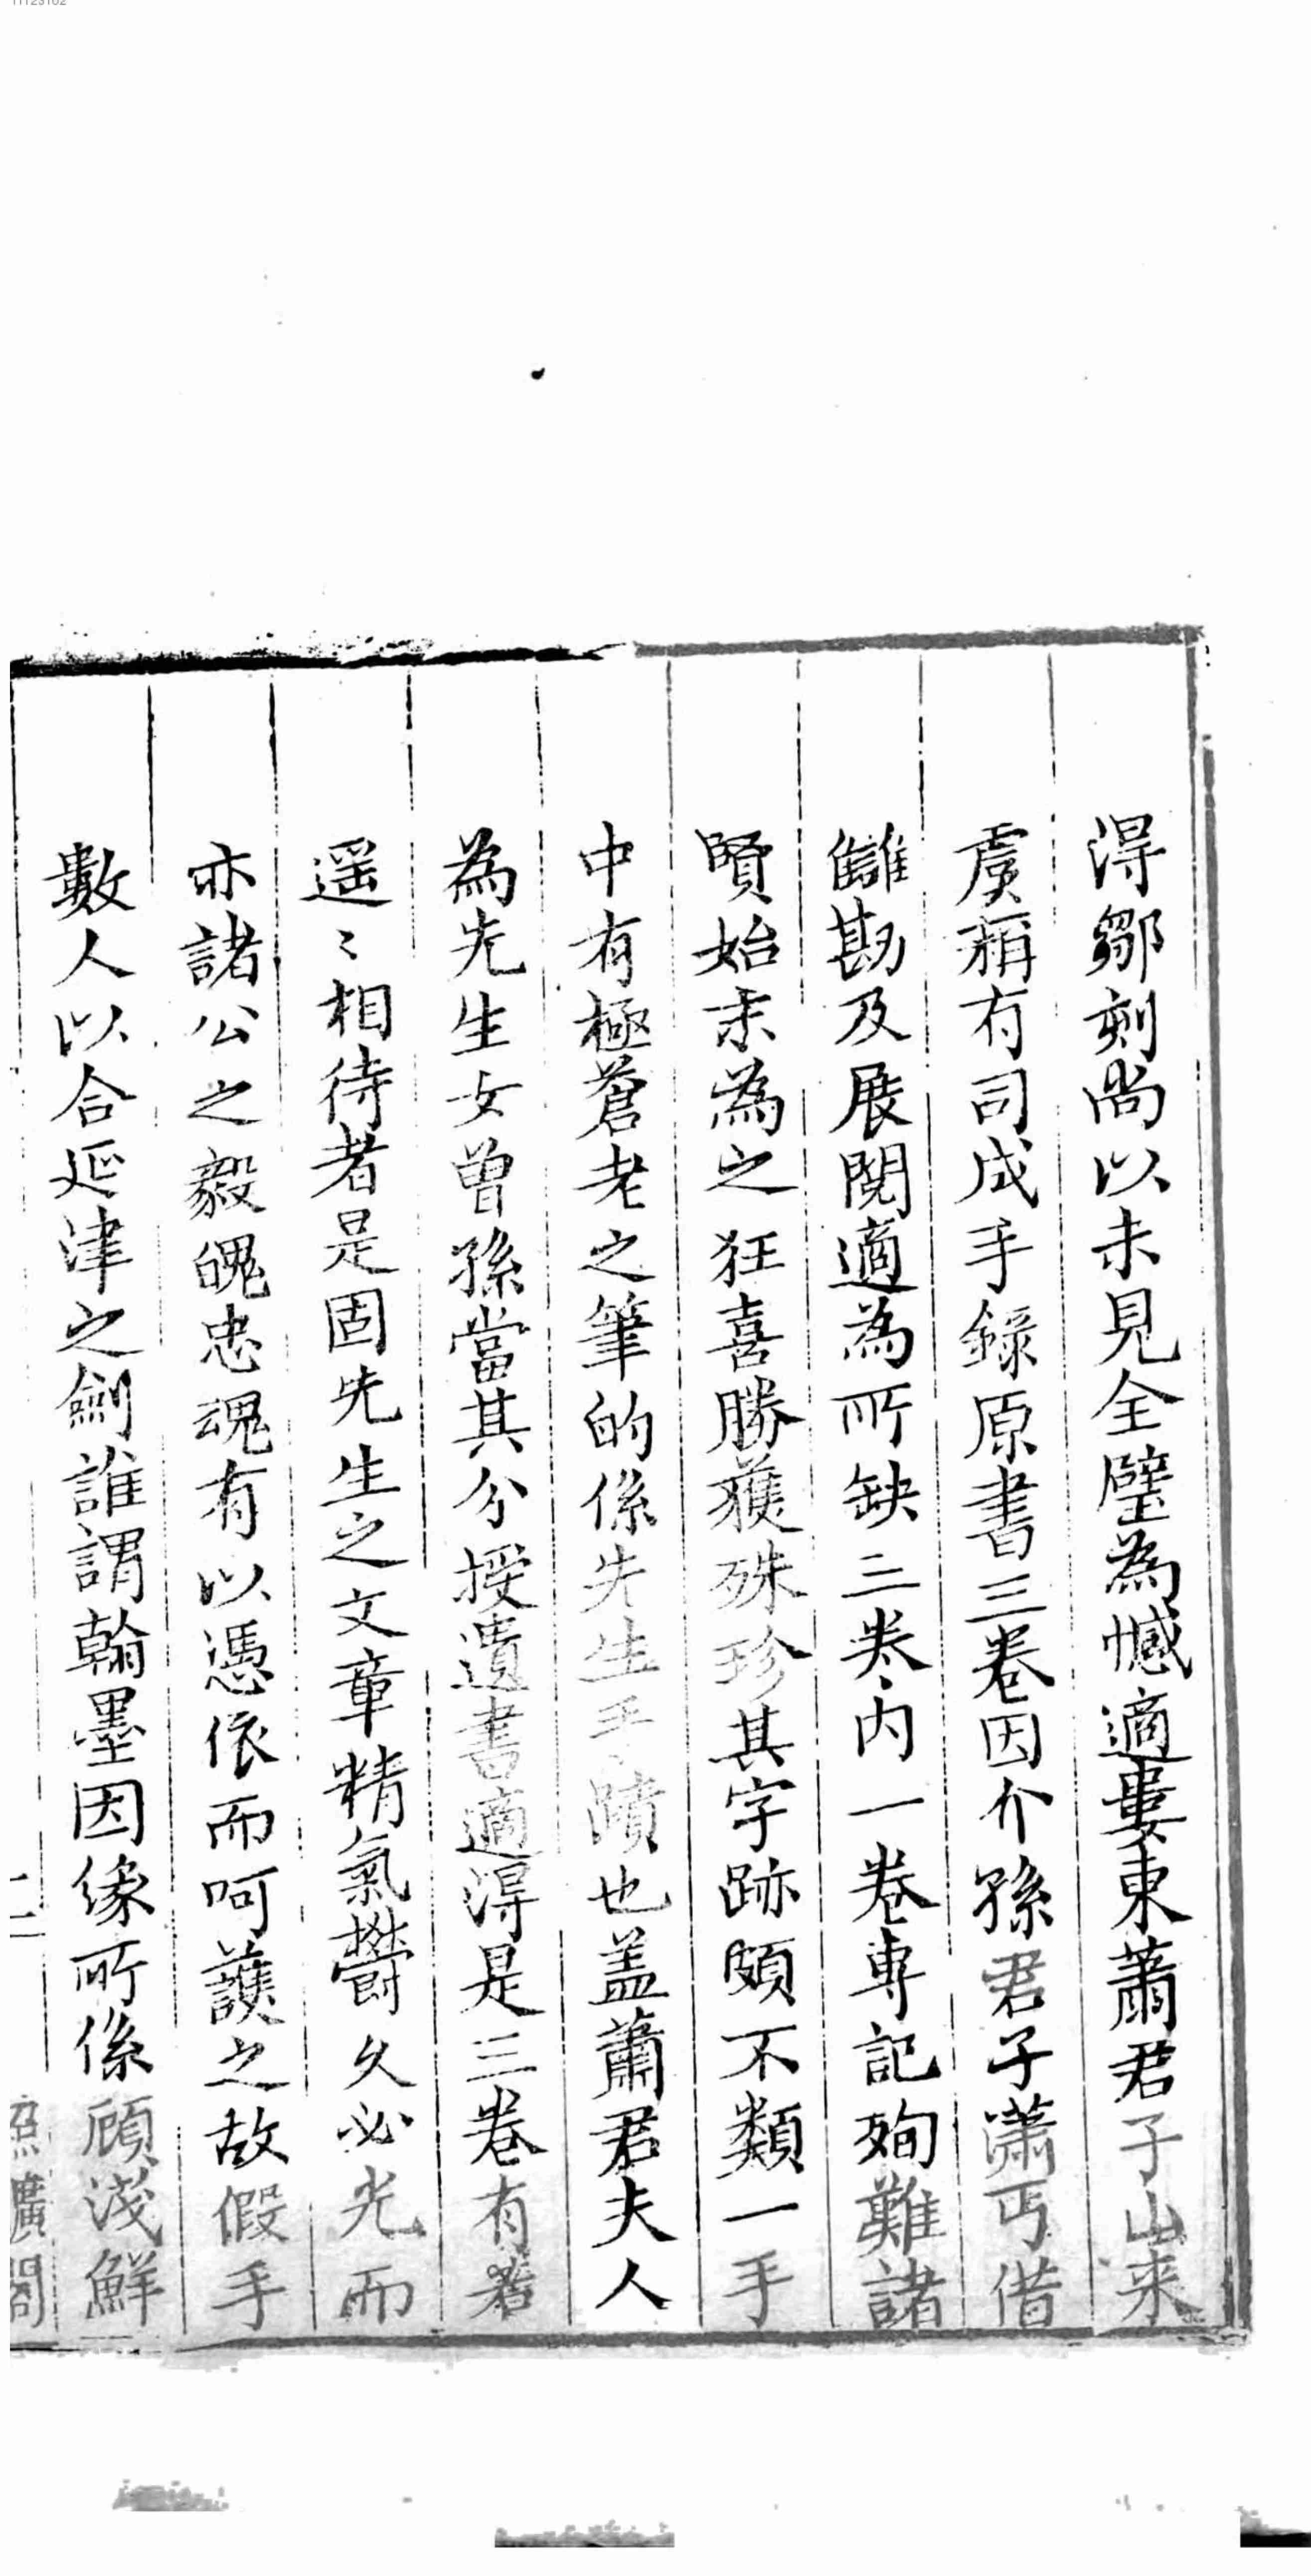 得鄒刻尚以未見全璧為憾適婁東蕭君子山来
虞稱有司成手錄原書三卷因介孫君子瀟丐借
讎勘及展閱適為所缺三卷内一卷專記殉難諸
賢始末為之狂喜勝獲殊珍其字跡頗不類一手
中有極蒼老之筆的係先生手蹟也盖蕭君夫人
為先生女曾孫當其分授遺書適得是三卷有若
遥〻相待者是固先生之文章精氣欝久必光而
亦諸公之毅魄忠魂有以憑依而呵護之故假手
數人以合延津之劍誰謂翰墨因緣所係顧淺鮮
二
照曠閣